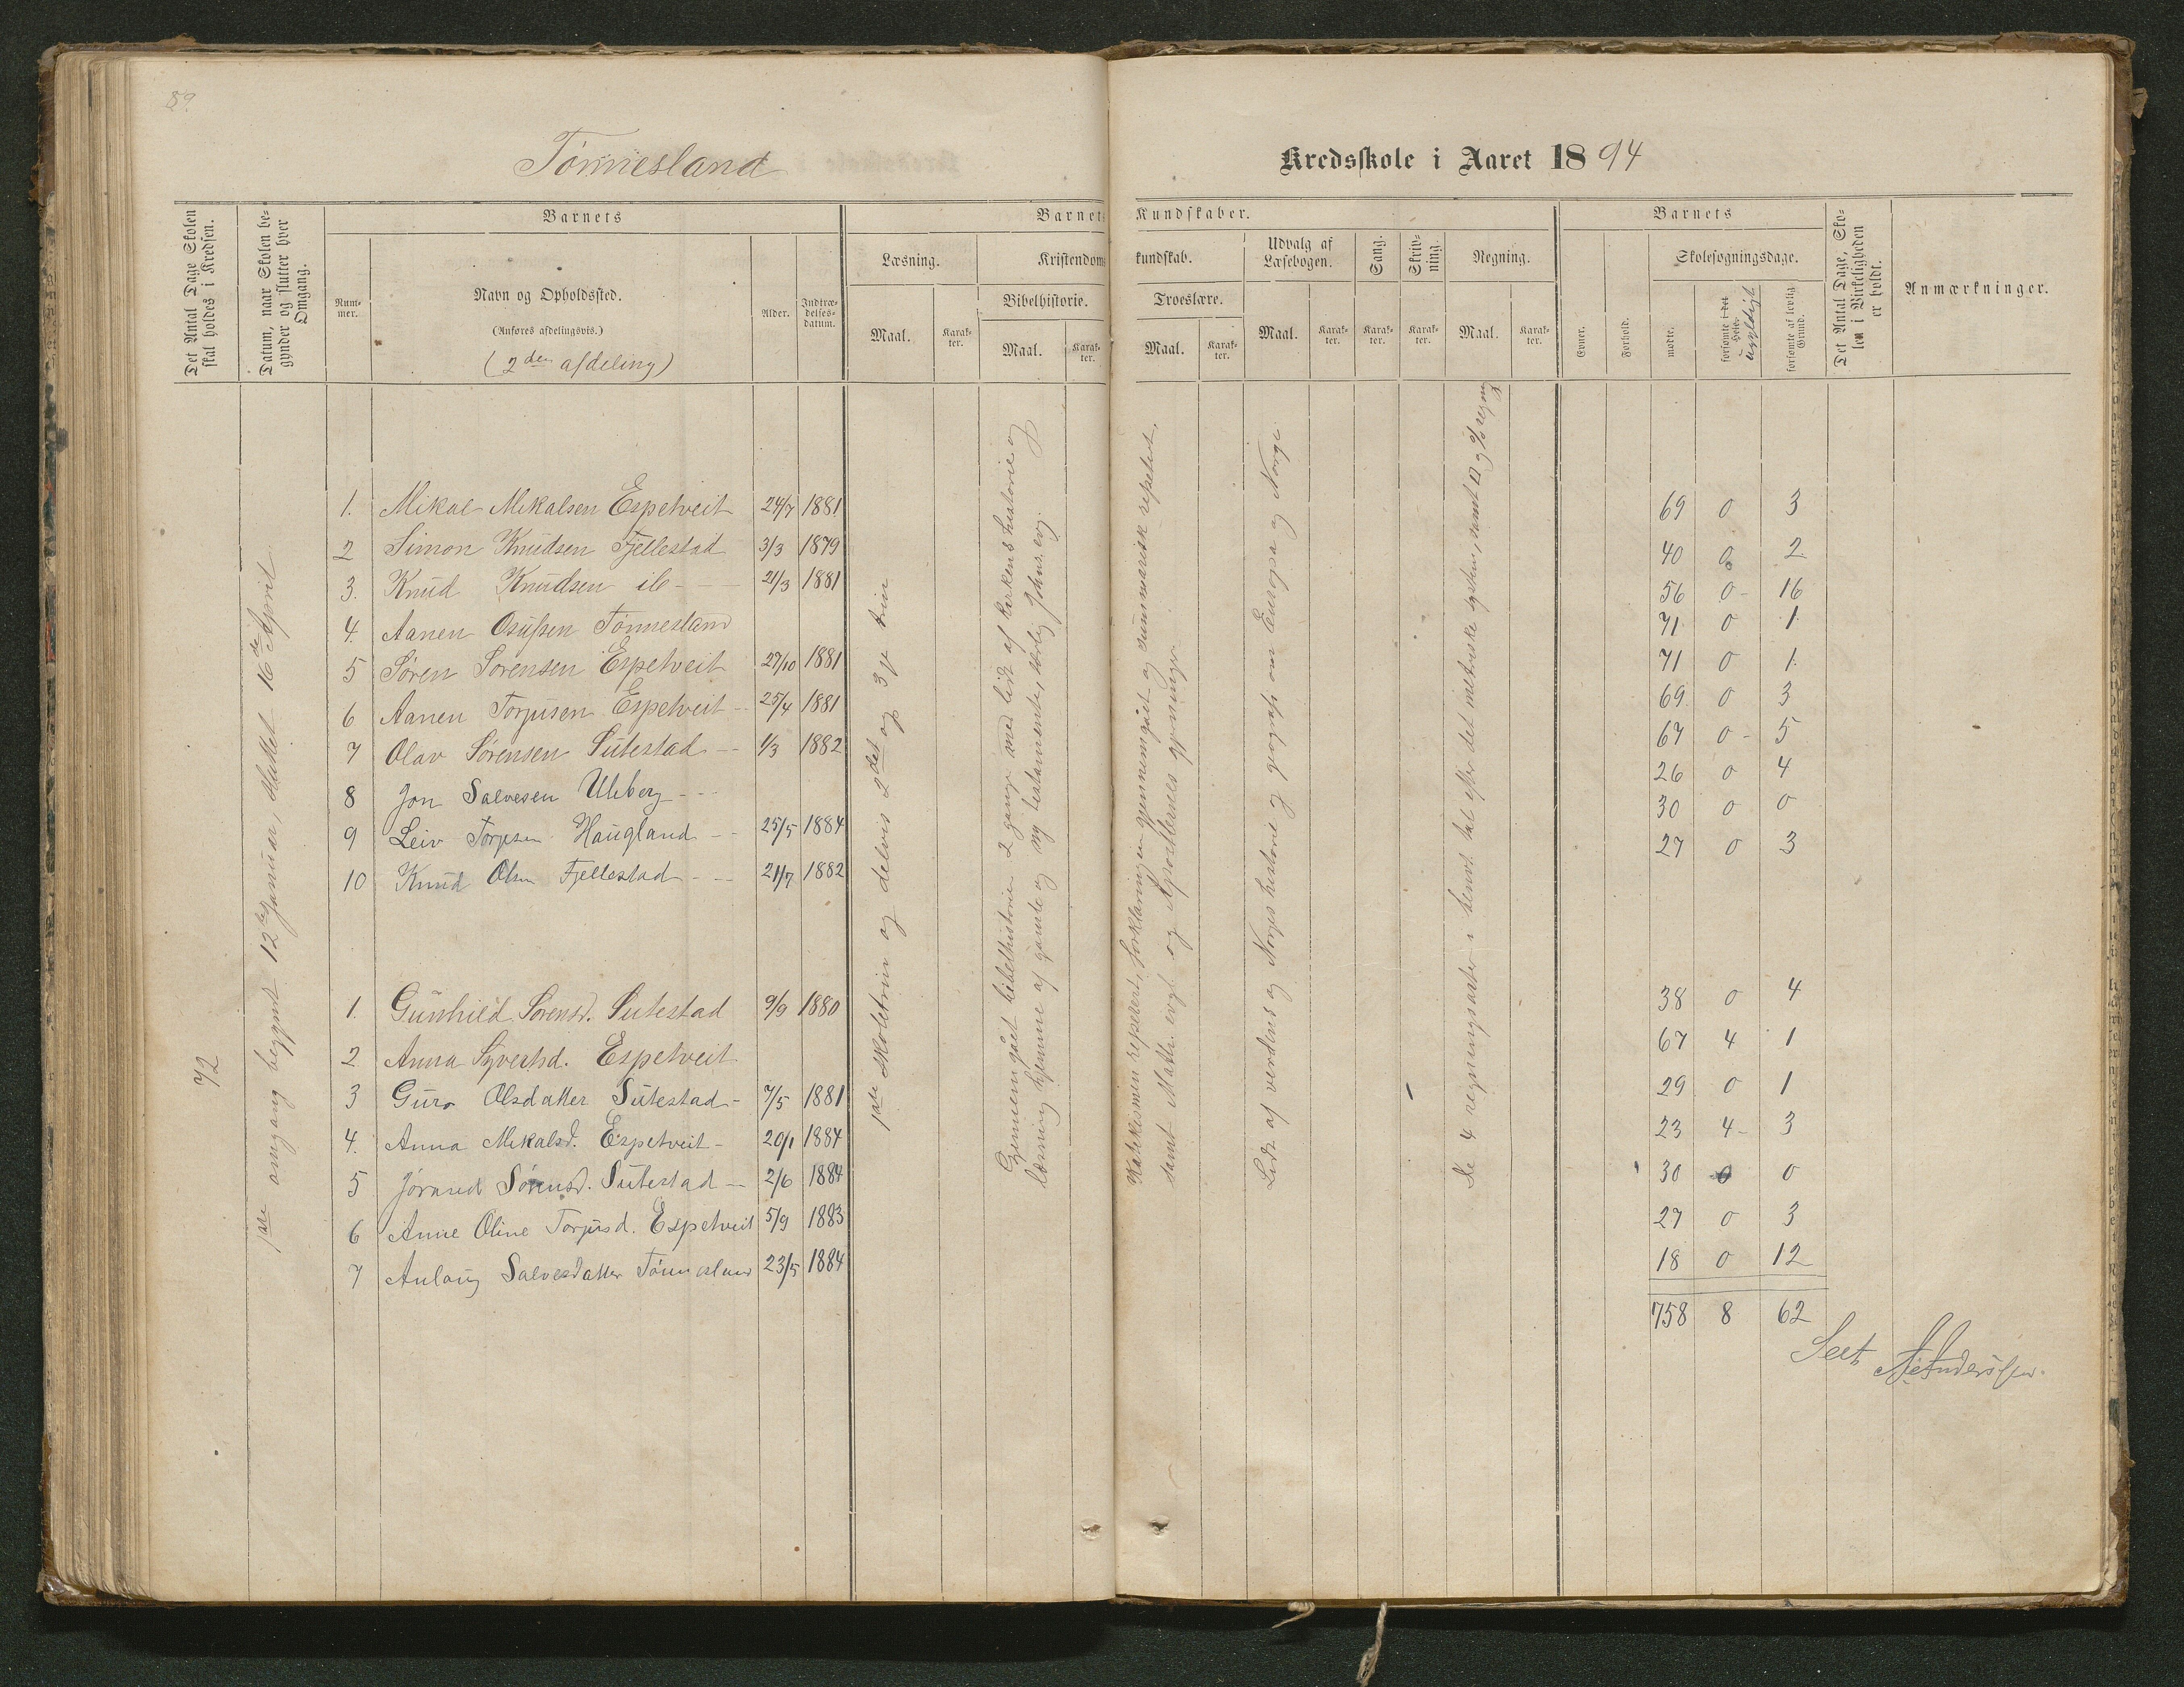 89.
Tönnesland
Kredsskole i Aaret 1894
Det Antal Dage Skolen skal holdes i Kredsen.
Datum, naar Skolen begynder og slutter hver Omgang.
Barnets
Nummer.
Navn og Opholdssted.
(Anføres afdelingsvis.)
(2den afdeling)
Alder.
Indtrædelsesdatum.
Barnets Kundskaber.
Læsning.
Maal.
Karakter.
Kristendomskundskab.
Bibelhistorie.
Maal.
Karakter.
Troeslære.
Maal.
Karakter.
Udvalg af Læsebogen.
Maal.
Karakter.
Sang.
Karakter.
Skrivning.
Karakter.
Regning.
Maal.
Karakter.
Barnets
Evner.
Forhold.
Skolesøgningsdage.
mødte.
forsømte i det Hele.
uskyldigt
forsømte af lovlig Grund.
Det Antal Dage, Skolen i Virkeligheden er holdt.
Anmærkninger.
72
1ste omgang begynt 12te Januar, sluttet 16de April
1. Mikal Mikalsen Espetveit 24/7 1881 69 0 3
2 Simon Knudsen Fjellestad 3/3 1879 40 0 2
3. Knud Knudsen ib - 21/3 1881 56 0 - 16
4. Aanen Osufsen Tönnesland 71 0 1
5 Søren Sørensen Espetveit 27/10 1881 71 0 1.
6 Aanen Torjusen Espetveit - 25/4 1881 69 0 3
7 Olav Sørensen Sutestad - 1/3 1882 67 0 - 5
8 Jon Salvesen Uleberg - 26 0 4
9 Leiv Torjusen Haugland - 25/5 1884 30 0 0
10 Knud Olsen Fjellestad - 21/7 1882 27 0 3
1. Gunhild Sørensd. Sutestad 9/9 1880 38 0 4
2 Anna Syvertsd. Espetveit 67 4 1
3 Guro Olsdatter Sutestad - 7/5 1881 29 0 1
4. Anna Mikalsd. Espetveit - 20/1 1884 23 4 - 3
5 Jørund Sørensd. Sutestad - 2/6 1884 30 0 0
6 Anne Oline Torjusd. Espetveit 5/9 1883 27 0 3
7 Aulaug Salvesdatter Tönnesland 23/5 1884 18 0 12
758 8 62
1ste skoletrin og delvis 2det og 3je trin
Gjennemgået bibelhistorien 2 gange med lidt af kirkens historie og
læsning hjemme af gamle og ny testamente, særlig Johns. evg.
Katekismen repetert, forklaringen gjennemgået og summarisk repetert.
samt Matth. evgl. og Apostlernes gjerninger.
Lidt af verdens og Norges historie og geografi om Europa og Norge.
De 4 regningsarter i benevt tal efter det metriske system, samt og % regning
Seet A. Anderssen.